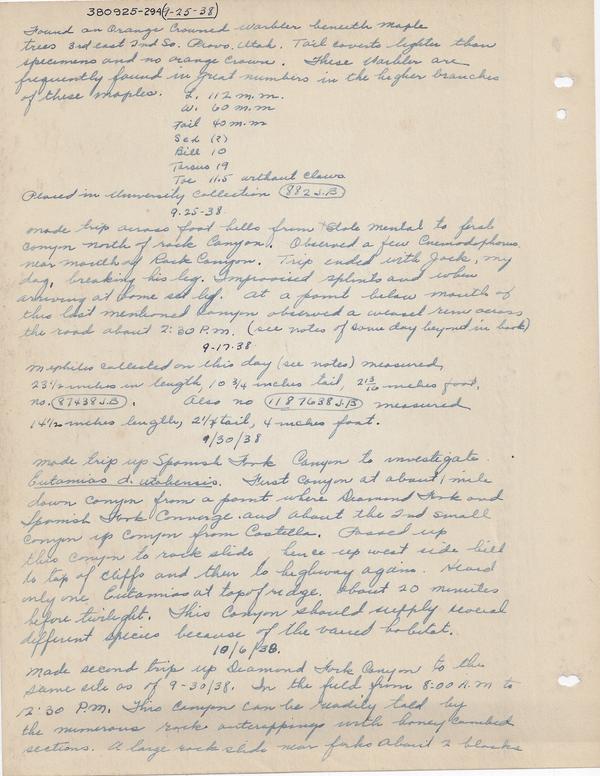 380925-294 (9-25-38)
Found an Orange Crowned Warbler beneath maple
trees 3rd east 2nd So. Provo, Utah. Tail coverts lighter than
specimens and no orange crown. These Warbler are
frequently found in great numbers in the higher branches
of these maples. L. 112 m.m.
W. 60 m.m
Tail 40 m.m
Sex (?)
Bill 10
Tarsus 19
Toe 11.5 without claws
Placed in University Collection (882 J.B)
9-25-38
made trip across foot hills from State Mental to first
canyon north of rock Canyon. Observed a few Cnemodophorus
near mouth of Rock Canyon. Trip ended with Jack, my
dog, breaking his leg. Improvised splints and when
arriving at home set leg. At a point below mouth of
this last mentioned canyon observed a weasel run across
the road about 2:30 P.M. (see notes of same day beyond in book)
9-17-38
Mephitis collected on this day (see notes) measured,
23 1/2 inches in length, 10 3/4 inches tail, 2 13/16 inches foot,
no. (87438 J.B). Also no (1187638 J.B) measured
14 1/2 inches length, 2 1/4 tail, 4 inches foot.
9/30/38
made trip up Spanish Fork Canyon to investigate
Eutamias d. utahensis. First canyon at about 1 mile
down canyon from a point where Diamond Fork and
Spanish Fork Converge and about the 2nd small
canyon up canyon from Castella. Passed up
this canyon to rock slide, hence up west side hill
to top of cliffs and then to highway again. Heard
only one Eutamias at top of redge, about 20 minutes
before twilight. This Canyon should supply several
different species because of the varied habitat.
10/6/38.
Made second trip up Diamond Fork Canyon to the
same site as of 9-30/38. In the field from 8:00 A.M to
2:30 P.M. This Canyon can be readily told by
the numerous rock outcroppings with honey combed
sections. A large rock slide near forks about 2 blocks